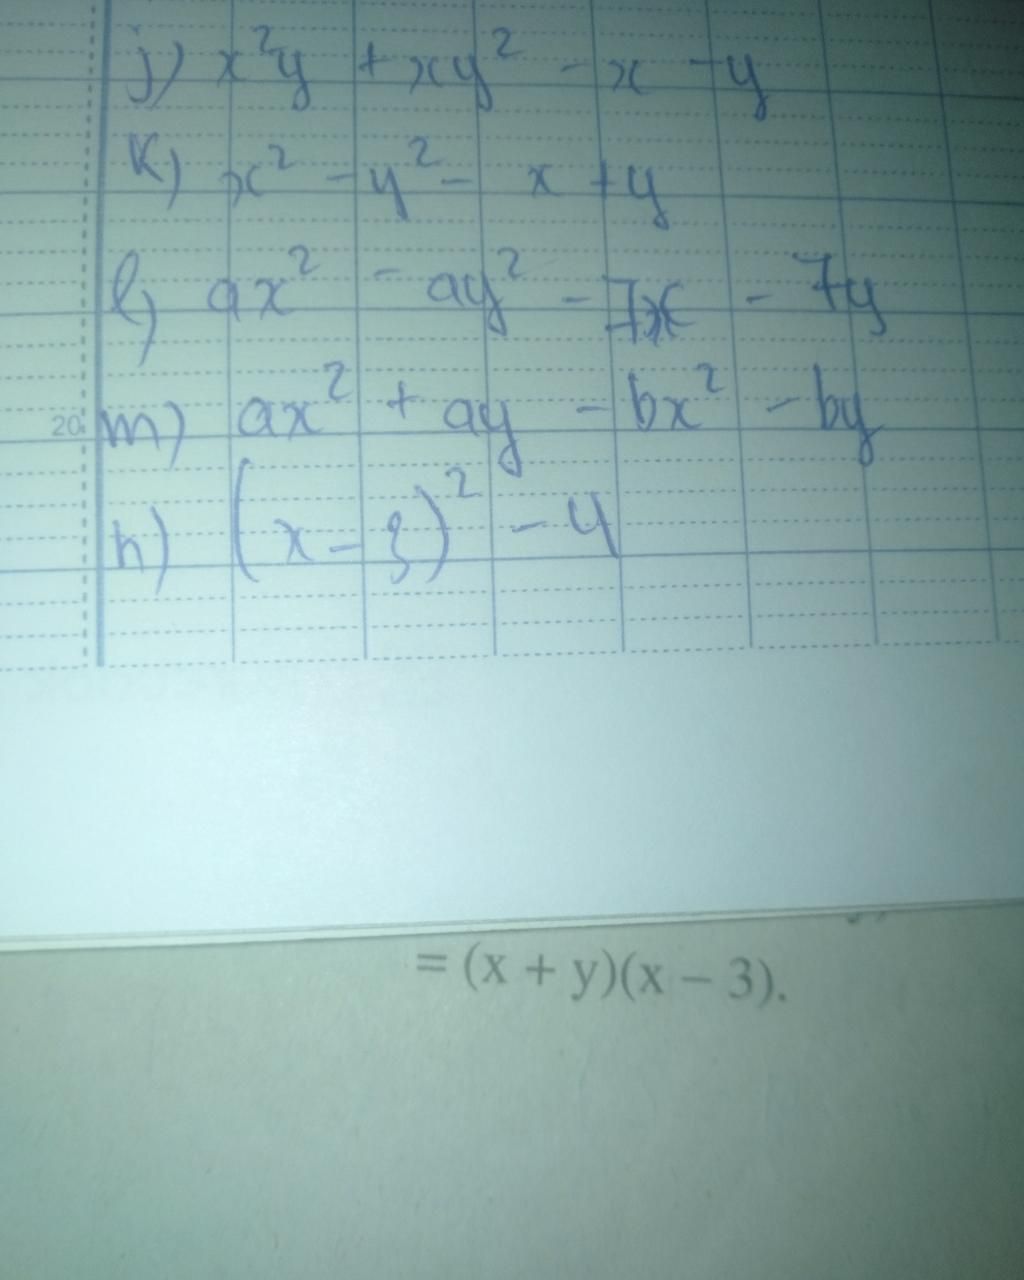 j) x²y + xy² - x - y
k) x² - y² - x + y
l) ax² - ay² - 7x - 7y
20 m) ax² + ay - bx² - by
n) (x - 3)² - 4
= (x + y)(x – 3).